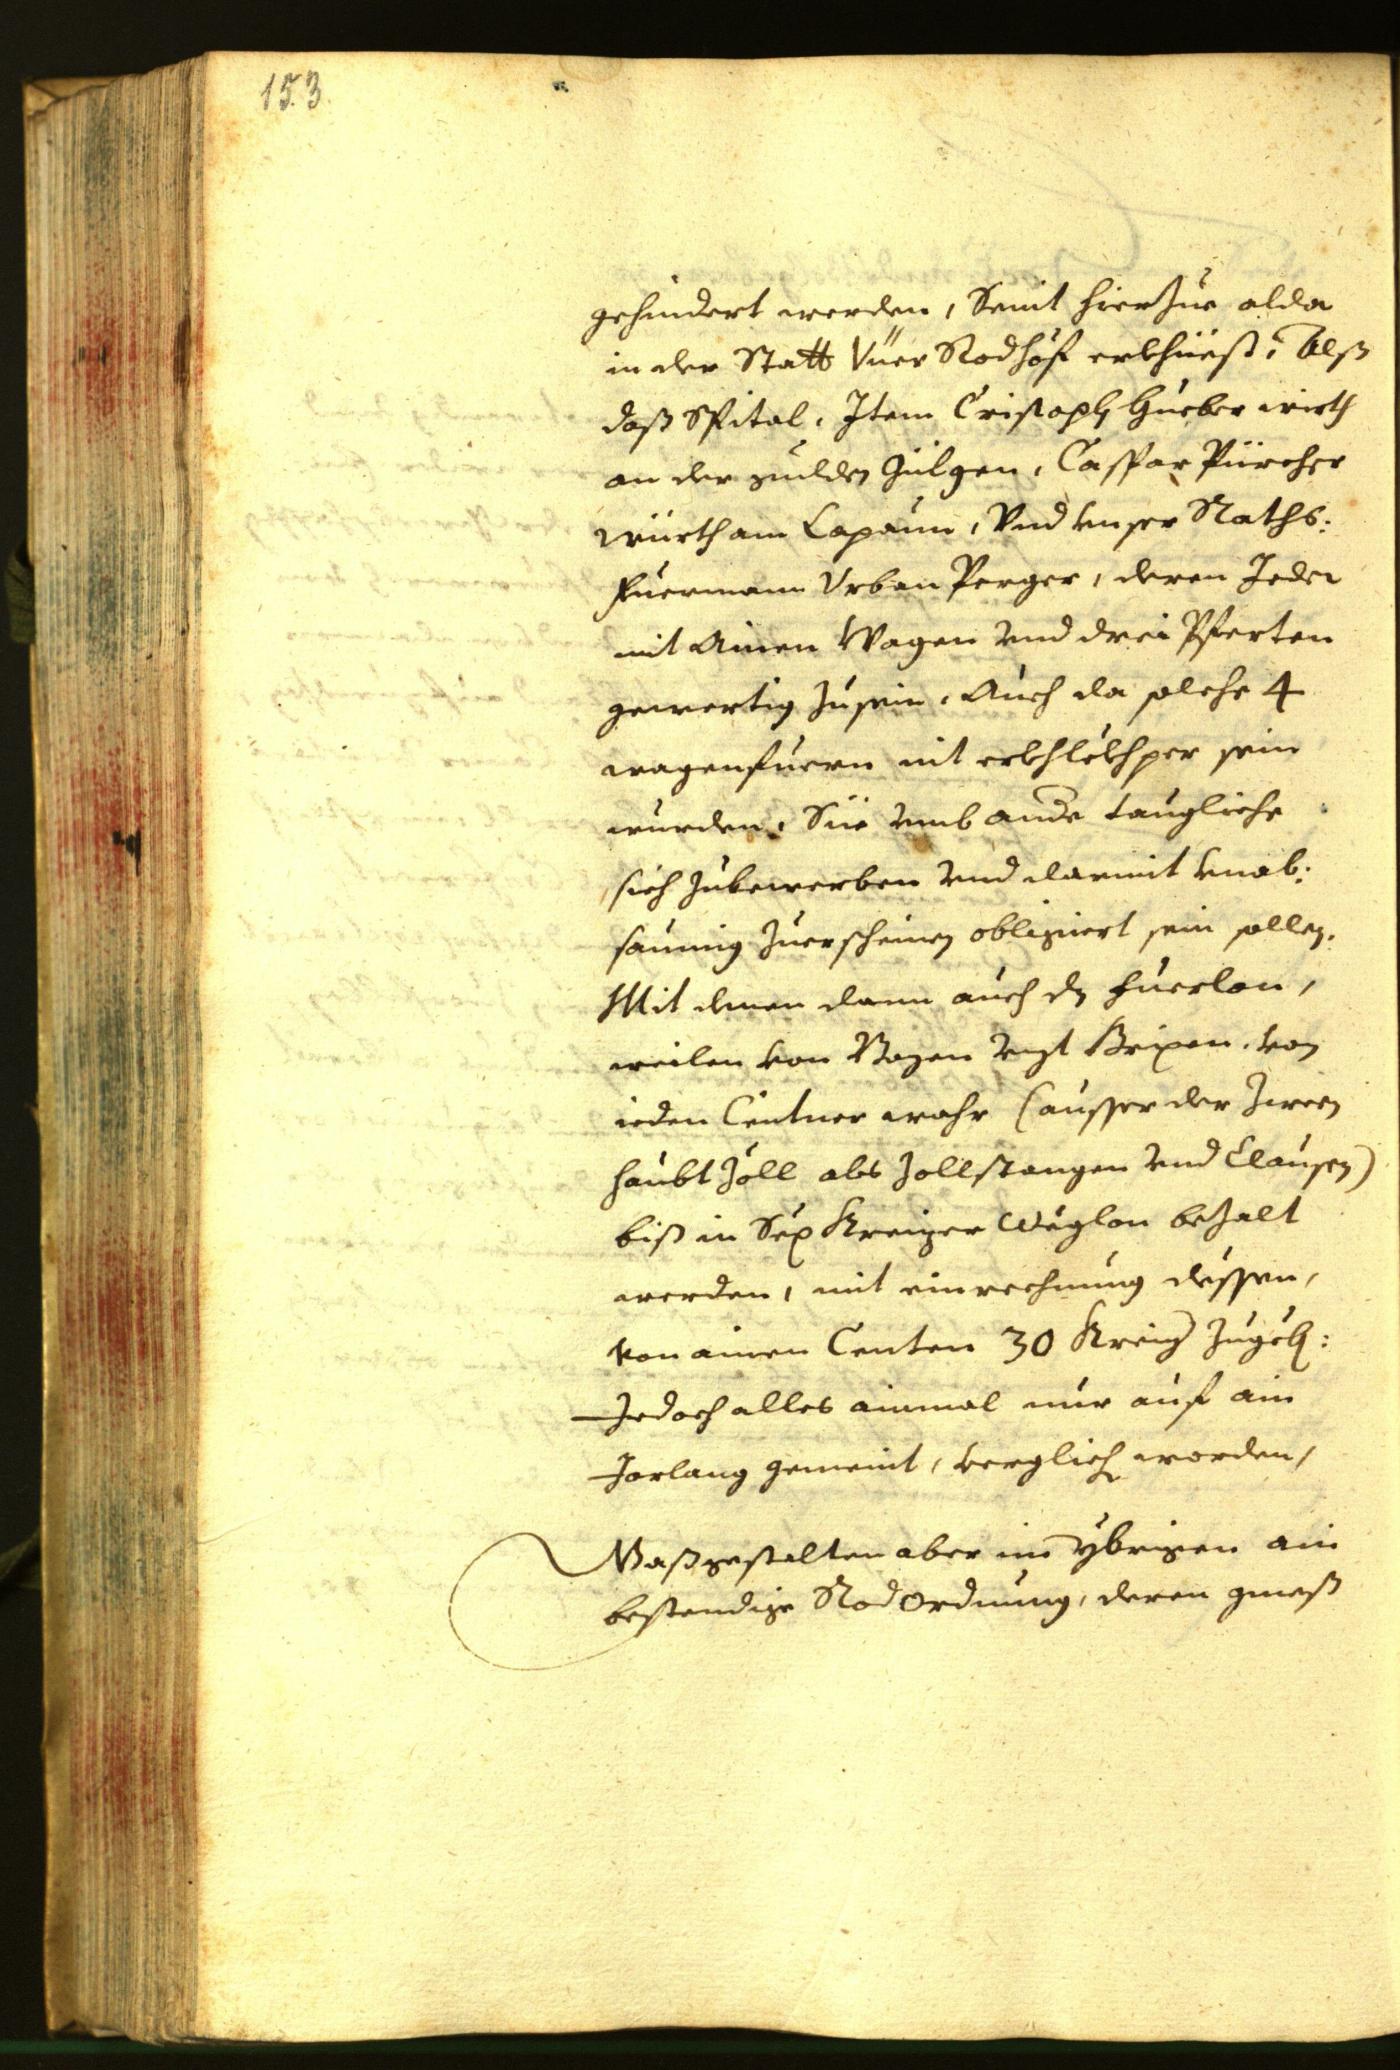 153
gehindert werden, Seint hierzue alda
in der Statt Vier Rodhöf erkhüest, Alß
daß Spital, Item Cristoph Hueber wirth
an der gulden Gilgen, Caspar Pürcher
würth am Capaun, Vnd vnser Raths:
fuermann Vrban Perger, deren Jeder
mit Ainen Wagen vnd drei Pferten
gewertig zusein, Auch da solche 4
wagenfuern nit erkhlekhper sein
wurden, Sie vmb andere taugliche
sich zubewerben vnd darmit vnab:
saumig zuerscheinen obligiert sein sollen.
Mit denen dann auch dz fuerlon,
weilen von Bozen vngt Brixen, von
ieden Centner wahr (ausser der zween
haubt Zoll als Zollstangen vnd Clausen)
biß in Sex Kreizer Weglon bezalt
werden, mit einrechnung dessen,
von ainen Centen 30 Kreiz zugeb:
Jedoch alles ainmal nur auf ain
Jarlang gemeint, verglich worden,
Waßgestalten aber im ybrigen ain
bestendige Rod Ordnung, deren gmeß